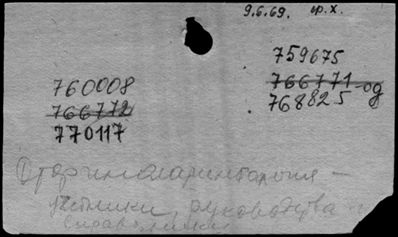 9.6.69. гр.х.
759675
760008 766771-од
766772 768825
770117
Оториноларингология —
учебники, руководства и
справочники